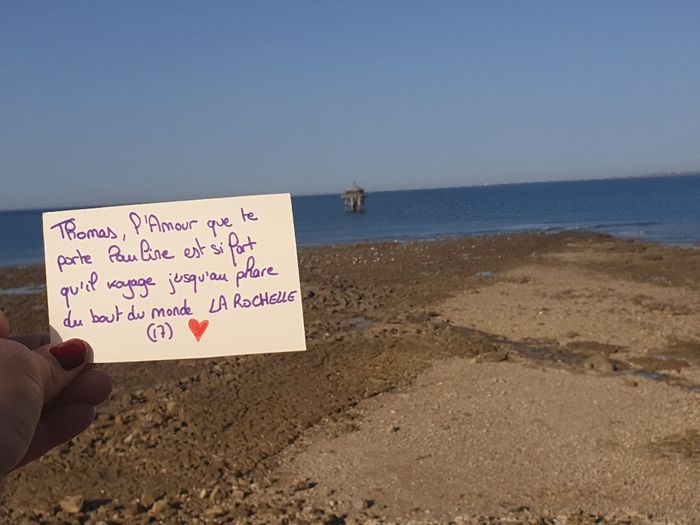 Thomas, l'Amour que te
porte Pauline est si fort
qu'il voyage jusqu'au phare
du bout du monde LA ROCHELLE
(17)